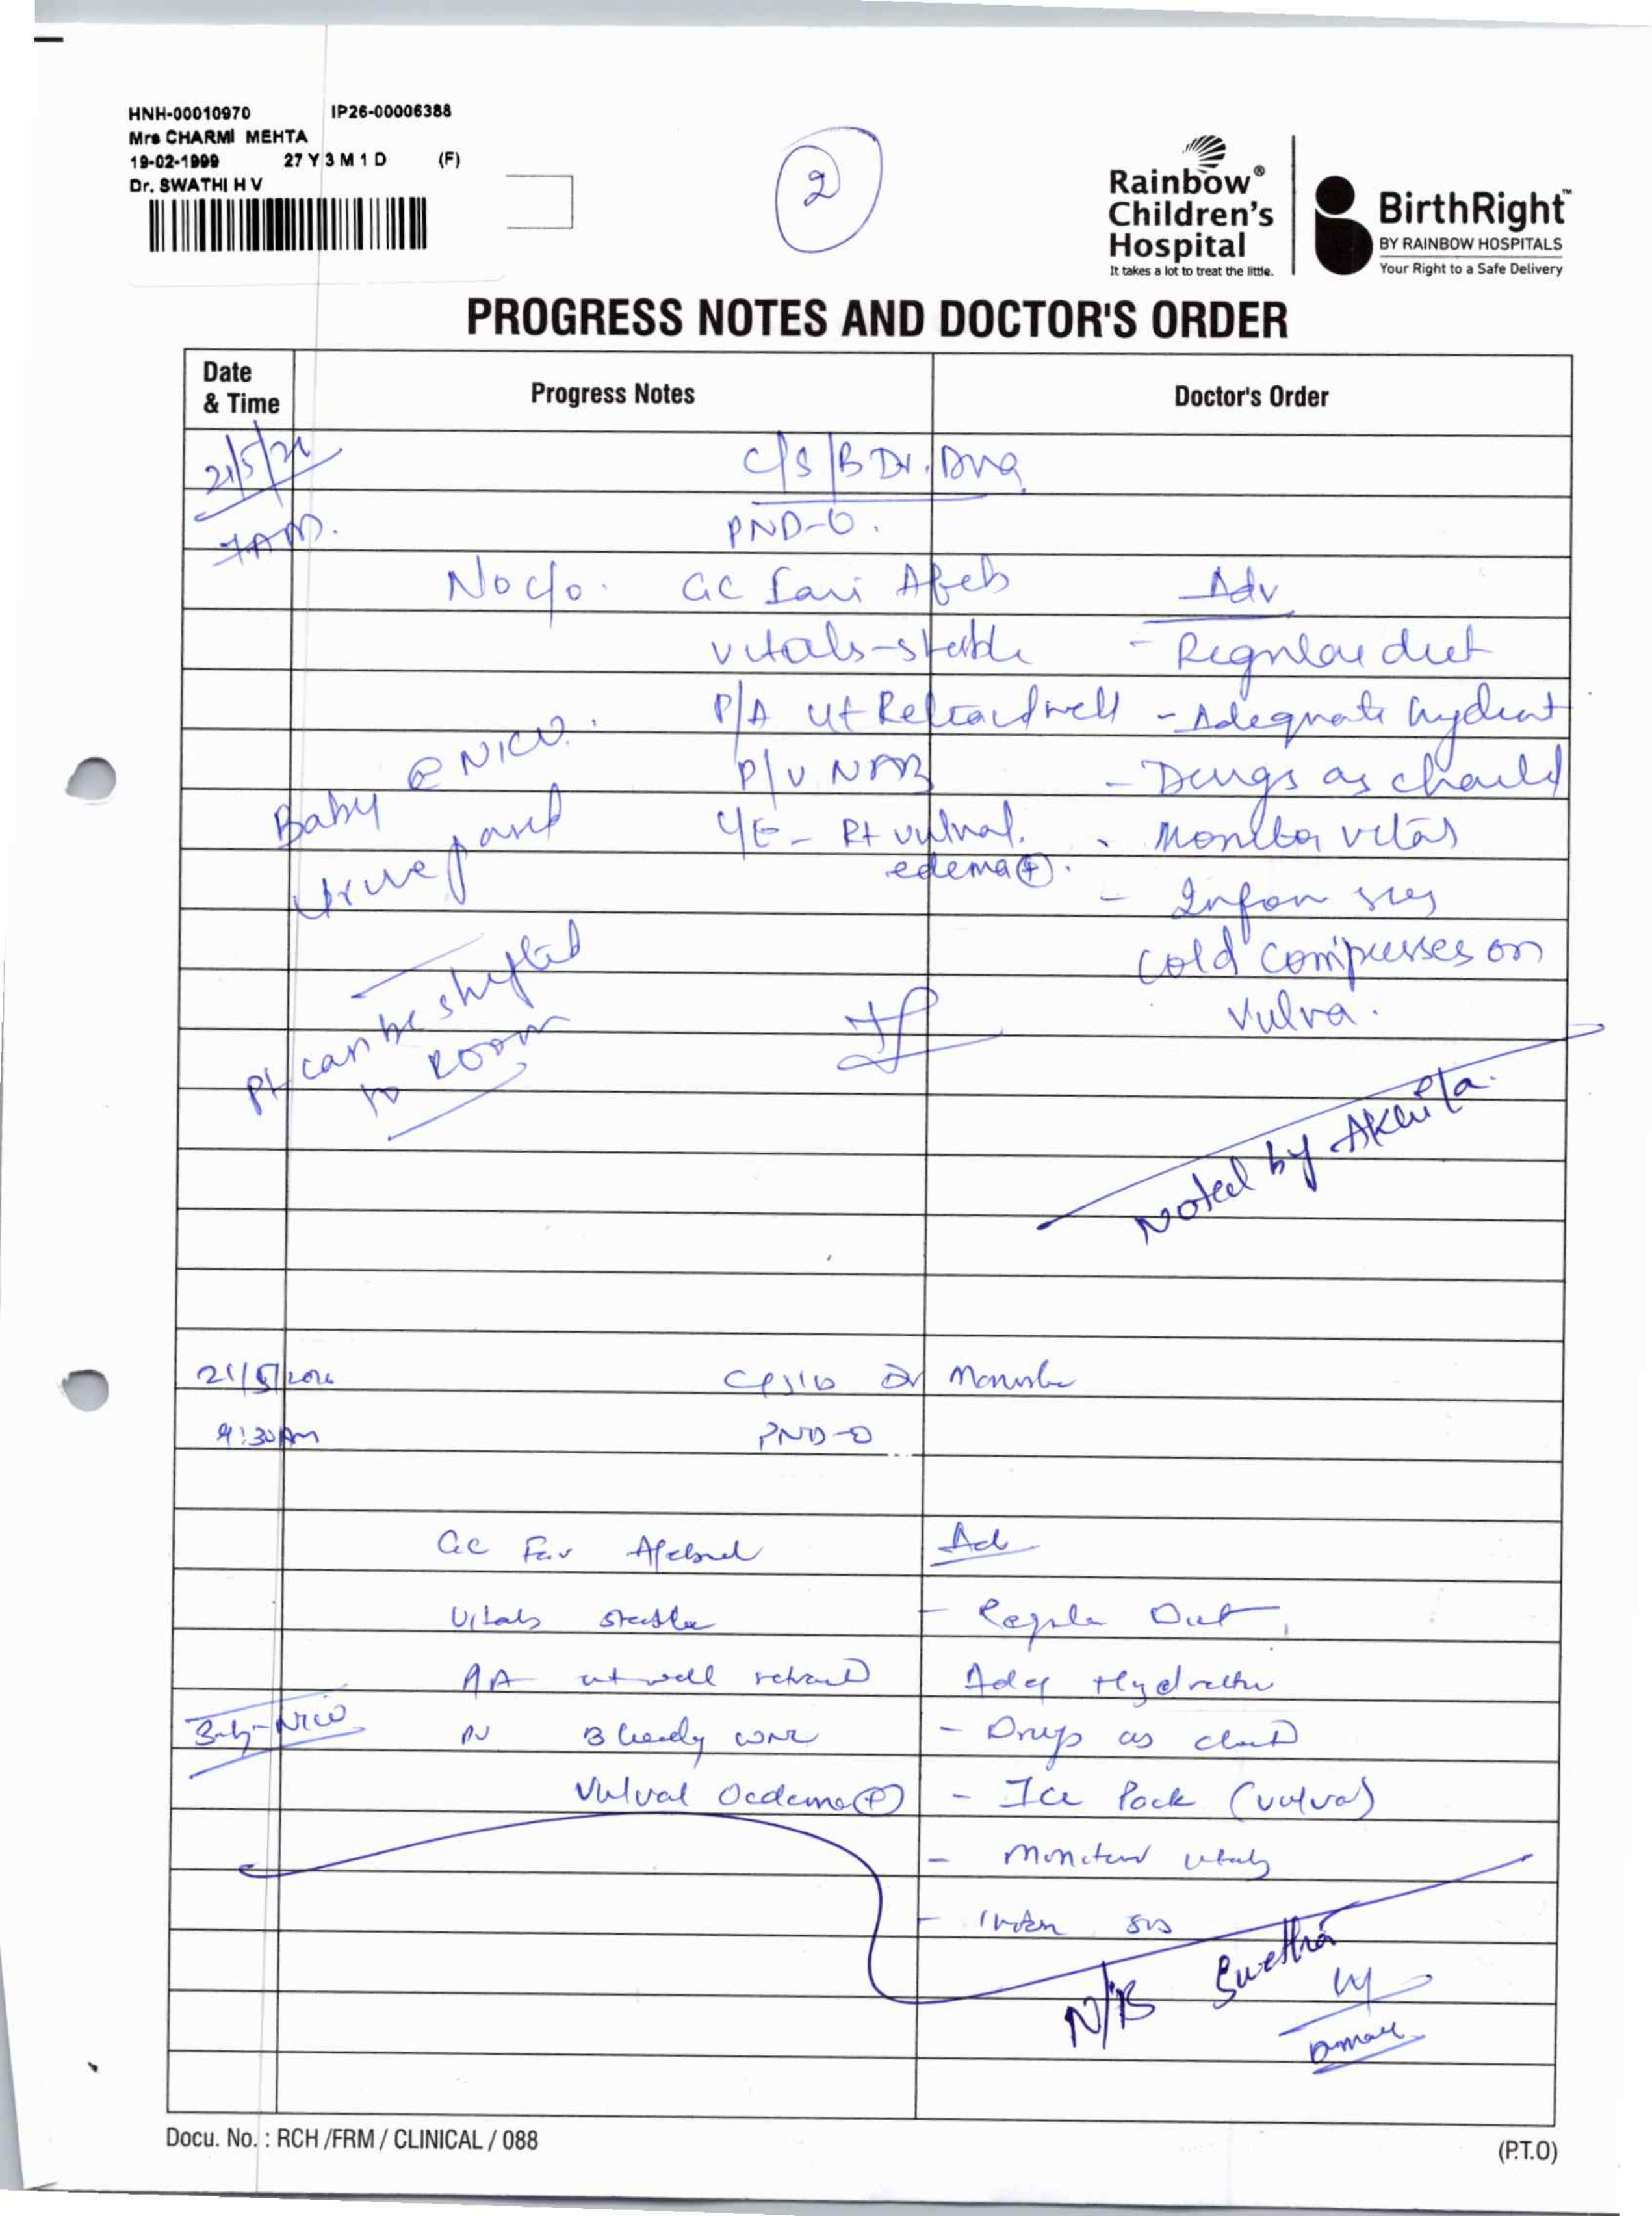 HNH-00010970 IP26-00006388
Mrs CHARMI MEHTA
19-02-1999 27 Y 3 M 1 D (F)
Dr. SWATHI H V
2
Rainbow®
Children's
Hospital
It takes a lot to treat the little.
BirthRight™
BY RAINBOW HOSPITALS
Your Right to a Safe Delivery
PROGRESS NOTES AND DOCTOR'S ORDER
Date
& Time
Progress Notes
Doctor's Order
21/5/26 C/S/B Dr.
7AM. PND-0.
No c/o. GC Fair Afeb Adv
vitals-stable - Regular diet
P/A ut Retracted well - Adequate hydrat
Baby @ NICU. P/V NAB - Drugs as
urine passed L/E - Rt vulval. - Monitor vitals
edema(+). - Inform sos
cold compresses on
Vulva.
Pt can be shifted
to Room
Noted by Akhila.
21/5/2026 C/S/B Dr
9:30Am PND-0
GC Fair Afebrile Ad
Vitals stable - Regular Diet
P/A ut well retracted Adeq Hydration
Baby-NICU PV Bleeding WNL - Drugs as
Vulval Oedema(+) - Ice Pack (vulva)
- Monitor vitals
- Inform sos
N/B Swetha
Docu. No. : RCH /FRM / CLINICAL / 088
(P.T.O)